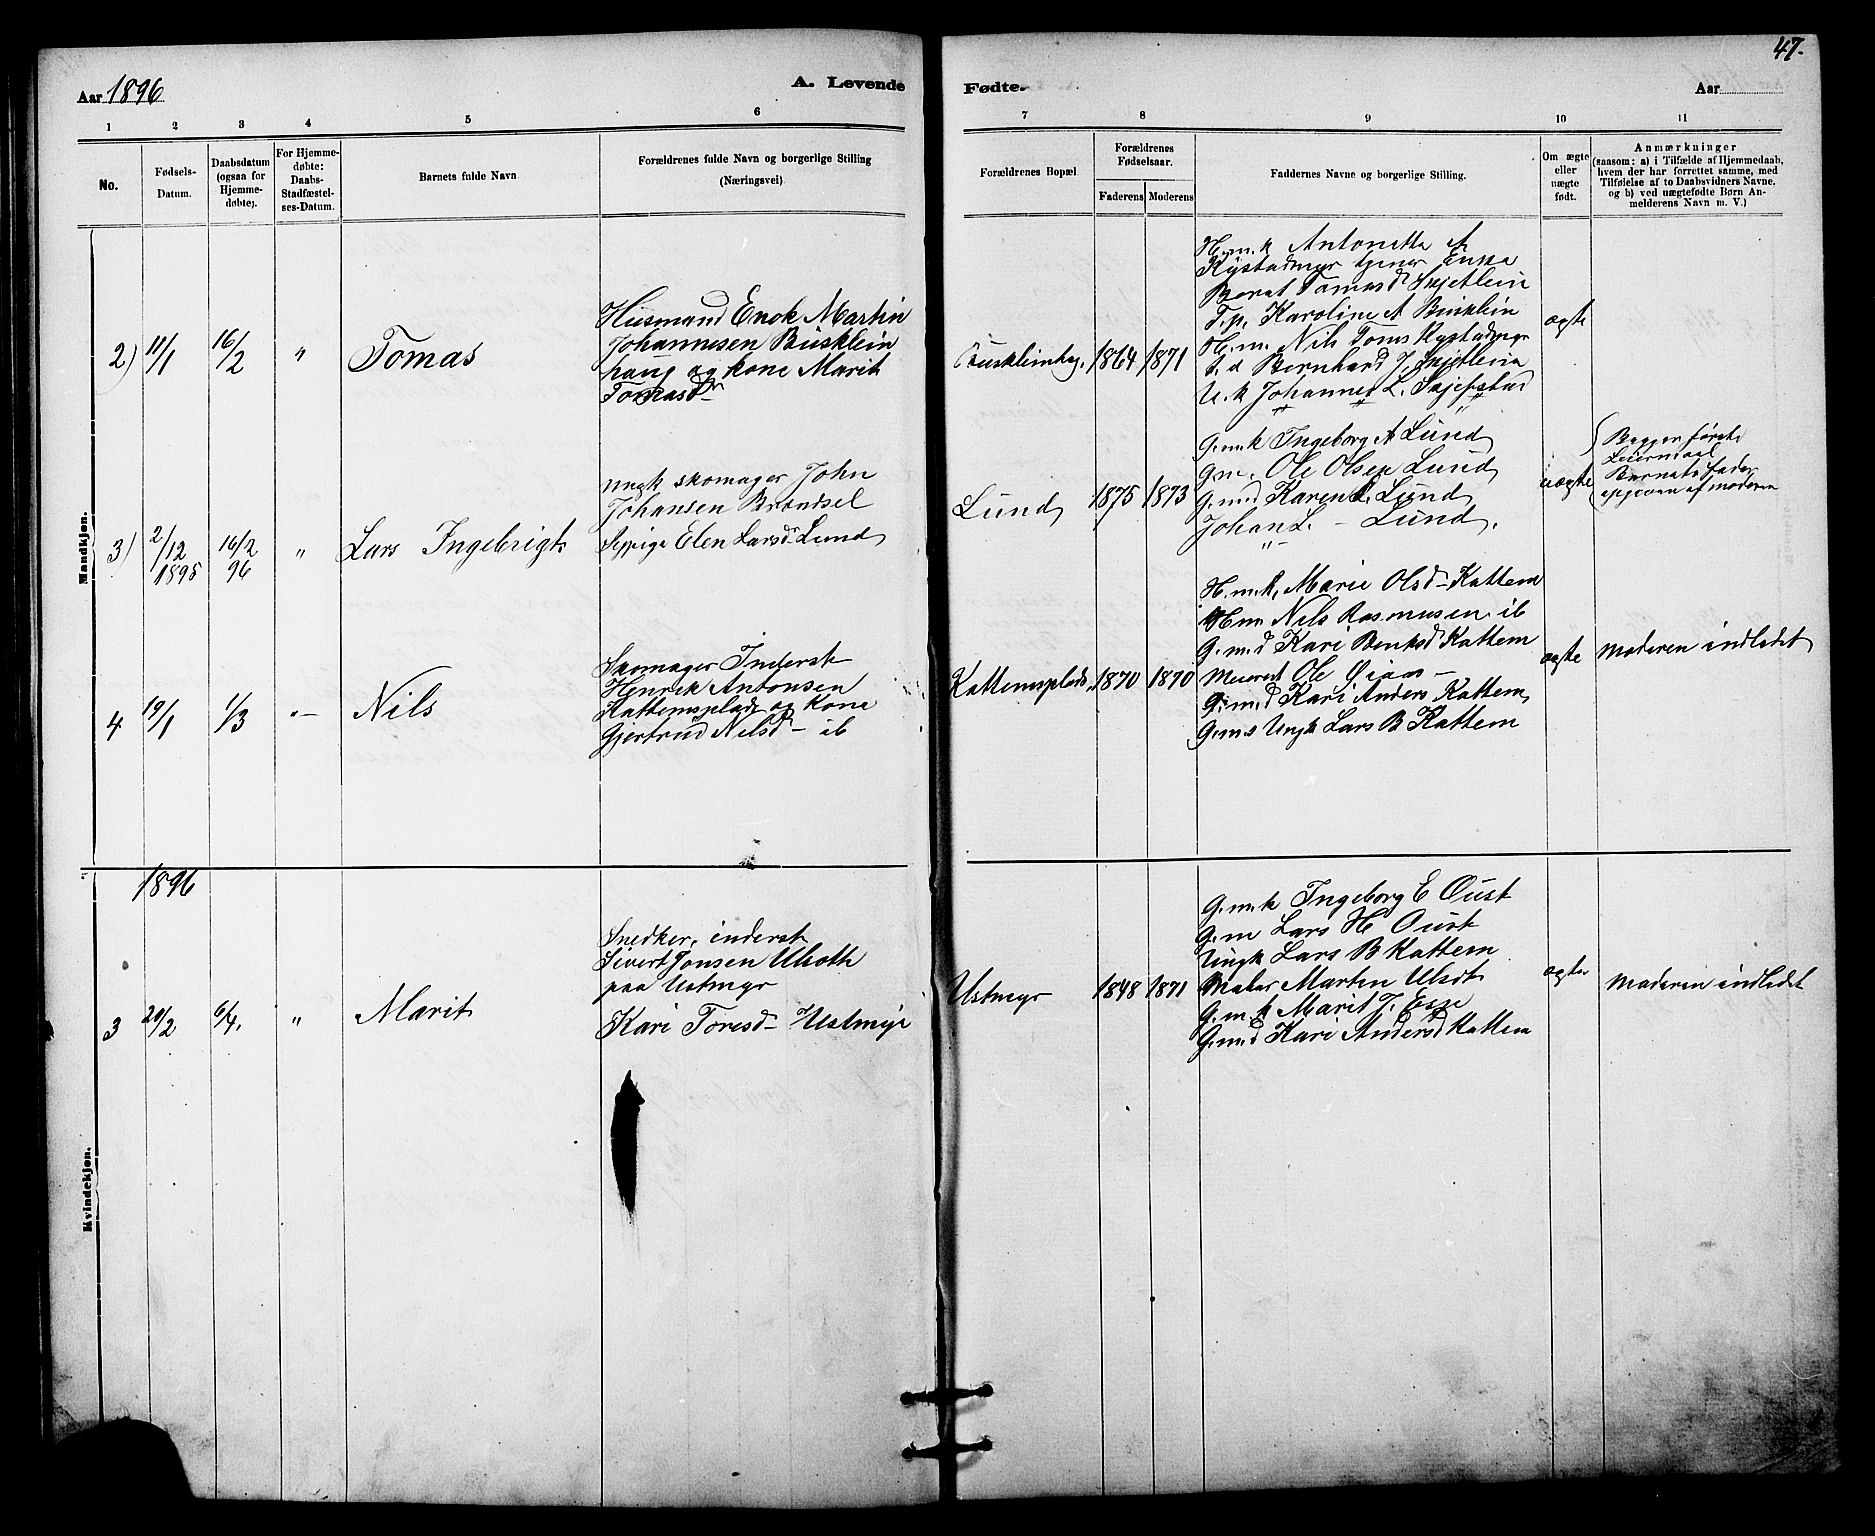 47.
Aar 1896
A. Levende
Fødte.
Aar
1 2 3 4 5 6
7 8 9 10 11
No.
Fødsels-
Datum.
Daabsdatum
(ogsaa for
Hjemme-
døbte).
For Hjemme-
døbte:
Daabs-
Stadfæstel-
ses-Datum.
Barnets fulde Navn
Forældrenes fulde Navn og borgerlige Stilling
(Næringsvei)
Forældrenes Bopæl.
Forældrenes
Fødselsaar.
Faderens Moderens
Faddernes Navne og borgerlige Stilling.
Om ægte
eller
uægte
født.
Anmærkninger
(saasom: a) i Tilfælde af Hjemmedaab,
hvem der har forrettet samme, med
Tilføielse af to Daabsvidners Navne,
og b) ved uægtefødte Børn An-
melderens Navn m. V.)
Mandkjøn.
2) 11/1 16/2 " Tomas
Husmand Enok Martin
Johannesen Busklein
haug og kone Marit
Tomasdr
Buskleinhg. 1864 1871
H.m.k Antonetta A
Rystadmyr tjener
Beret Tomasd Skjetlein
T.p. Karoline A Busklein
H.m. Nils Toms Rystadmyr
t.d Bernhard J. Skjetlein
U.k Johannes L. Skjefstad
ægte
3) 2/12 1895 16/2 96 " Lars Ingebrigt
ungk skomager John
Johansen Brøndsel
Pige Elen Larsdr Lund
Lund 1875 1873
G.m.k Ingeborg A Lund
Gm. Ole Olsen Lund
G.m.d Karen L. Lund
Johan L. – Lund.
uægte
Begges første
Leiermaal
Barnets fader
opgiven af moderen
4 19/1 1/3 "– Nils
Skomager Inderst
Henrik Antonsen
Kattemsplads og kone
Gjertrud Nilsd – ib
Kattemsplads. 1870 1870
H.m.k. Marie Olsd – Kattem
Hm Nils Rasmusen ib
G.m.d Kari Benksd Kattem
Meierest Ole Øiaas –
G.m.d Kari Anders Kattem
G.m.s Ungk Lars B Kattem
ægte
moderen indledet
Kvindekjøn.
1896
3 20/2 6/4. " Marit
Snedker, inderst
Sivert Jonsen Ulsoth
paa Ustmyr
Kari Toresd – Ustmyr
Ustmyr 1848 1871
G.m.k Ingeborg E Oust
G.m Lars H Oust
Ungk Lars B Kattem
Maler Marten Ulsdt
G.m.k Marit J. Esp
G.m.d Kari Andersd Kattem
ægte
moderen indledet